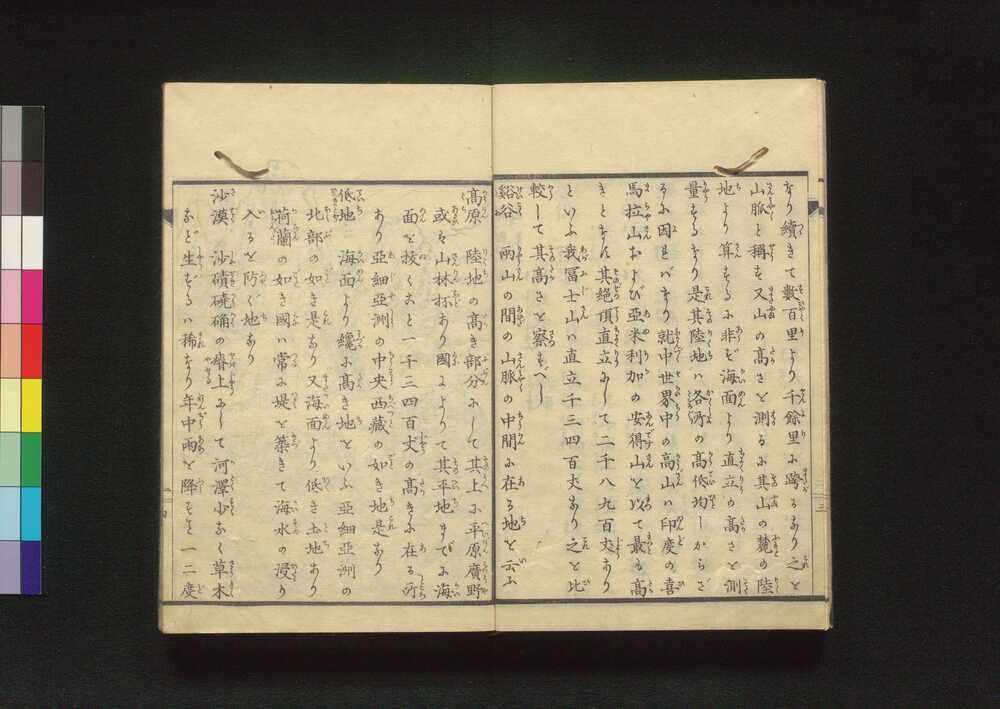 なり續きて數百里より千餘里に跨るあり之と
山脈と稱す又山の高さと測るに其山の麓の陸
地より算するに非ず海面より直立の高さと測
量するなり是其陸地ハ各所の高低均しからざ
るに因れバなり就中世界中の高山ハ印度の喜
馬拉山および亞米利加の安得山と以て最も高
きとなん其絶頂直立にして二千八九百丈あり
といふ我冨士山ハ直立千三四百丈あり之と比
較して其高さと察すべし
谿谷 兩山の間の山脈の中間に在る地と云ふ
高原 陸地の高き部分にして其上に平原廣野
或は山林抔あり國によりて其平地すでに海
面と抜くこと一千三四百丈の高きに在る所
あり亞細亞洲の中央西藏の如き地是なり
低地 海面より纔に高き地といふ亞細亞洲の
北部の如き是なり又海面より低き土地あり
荷蘭の如き國ハ常に堤と築きて海水の浸り
入ると防ぐ地あり
沙漠 沙磧磽确の瘠土にして河澤少なく草木
など生ずるハ稀なり年中雨と降すこと一二度
三